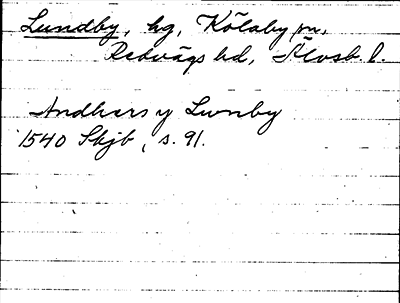 Lundby, hg, Kölaby sn,
Redvägs hd, Älvsb. l.
Andhers y Lwnby
1540 Skjb, s. 91.